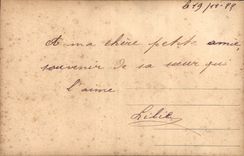 A ma chère petite amie,
souvenir de sa sœur qui
l'aime